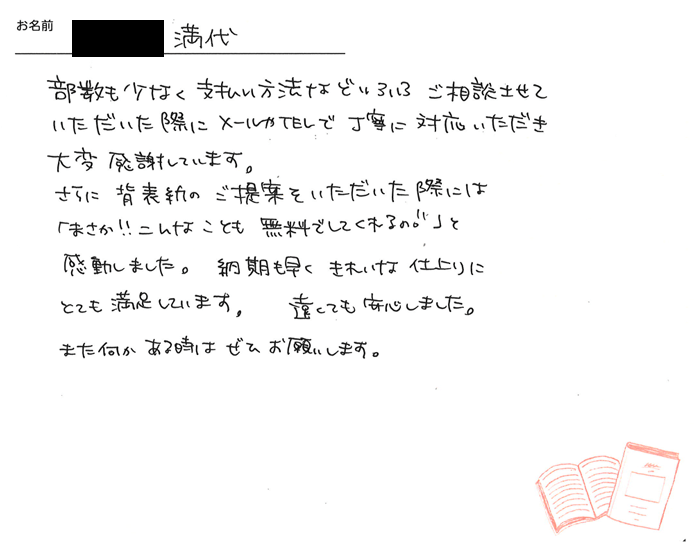 お名前 満代
部数も少なく支払い方法などいろいろご相談させて
いただいた際にメールやTELで丁寧に対応いただき
大変感謝しています。
さらに背表紙のご提案をいただいた際には
「まさか!!こんなことも無料でしてくれるの!!」と
感動しました。納期も早くきれいな仕上りに
とても満足しています。遠くても安心しました。
また何かある時はぜひお願いします。